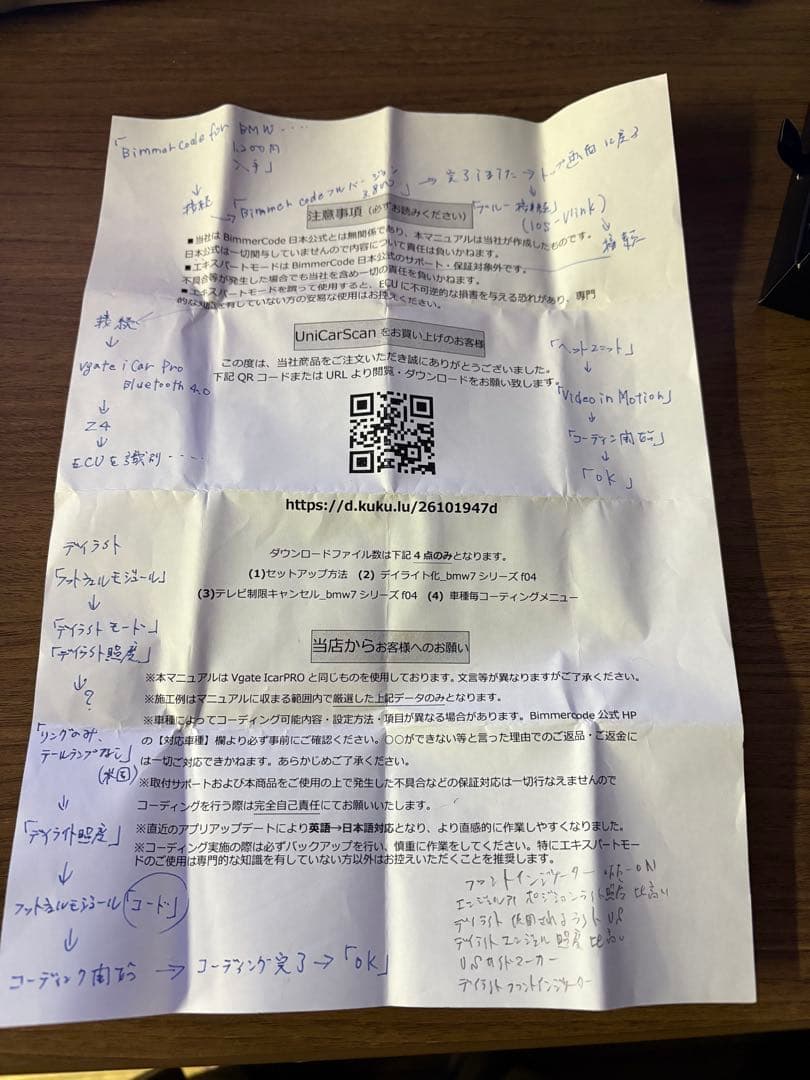 「Bimmer Code for BMW....
1,200円
入手」
↓
接続
→
「Bimmer code フルバージョン
→ 完了しました → トップ画面に戻る
↓
(ios-Vlink)
↓
接続
注意事項（必ずお読みください）
■当社は BimmerCode 日本公式とは無関係であり、本マニュアルは当社が作成したものです。
日本公式は一切関与していませんので内容について責任は負いかねます。
■エキスパートモードは BimmerCode 日本公式のサポート・保証対象外です。
不具合等が発生した場合でも当社を含め一切の責任を負いかねます。
■エキスパートモードを誤って使用すると、ECU に不可逆的な損害を与える恐れがあり、専門
的な知識を有していない方の安易な使用はお控えください。
接続
↓
Vgate iCar Pro
Bluetooth 4.0
↓
Z4
↓
ECUを識別....
UniCarScan をお買い上げのお客様
この度は、当社商品をご注文いただき誠にありがとうございました。
下記 QR コードまたは URL より閲覧・ダウンロードをお願い致します。
「ヘットユニット」
↓
「Video in Motion」
↓
「コーディン開始」
↓
「OK」
https://d.kuku.lu/26101947d
ダウンロードファイル数は下記 4 点のみとなります。
(1)セットアップ方法 (2) デイライト化_bmw7 シリーズ f04
(3)テレビ制限キャンセル_bmw7 シリーズ f04 (4) 車種毎コーディングメニュー
デイライト
「フットウェルモジュール」
↓
「デイライトモード」
「デイライト照度」
↓
?
「リングのみ、
テールランプなし」
(米国)
↓
「デイライト照度」
↓
フットウェルモジュール「コード」
↓
コーディング開始 → コーディング完了 → 「OK」
当店からお客様へのお願い
※本マニュアルは Vgate IcarPRO と同じものを使用しております。文言等が異なりますがご了承ください。
※施工例はマニュアルに収まる範囲内で厳選した上記データのみとなります。
※車種によってコーディング可能内容・設定方法・項目が異なる場合があります。Bimmercode 公式 HP
の【対応車種】欄より必ず事前にご確認ください。○○ができない等と言った理由でのご返品・ご返金に
は一切ご対応できかねます。あらかじめご了承ください。
※取付サポートおよび本商品をご使用の上で発生した不具合などの保証対応は一切行なえませんので
コーディングを行う際は完全自己責任にてお願いいたします。
※直近のアプリアップデートにより英語→日本語対応となり、より直感的に作業しやすくなりました。
※コーディング実施の際は必ずバックアップを行い、慎重に作業をしてください。特にエキスパートモー
ドのご使用は専門的な知識を有していない方以外はお控えいただくことを推奨します。
フロントインジケーター ON
エンジェルアイ ポジションライト照度 比高い
デイライト 使用されるライト US
デイライト エンジェル 照度 比高い
USサイドマーカー
デイライト フロントインジケーター